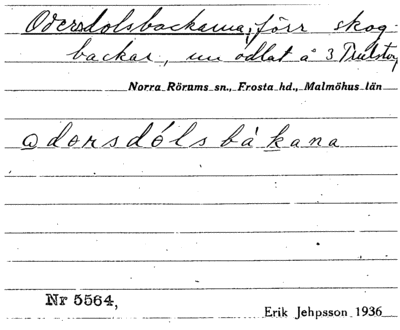 Odersdolsbackarna, förr skog-
backar, nu odlat å 3 Trulstorp
Norra Rörums sn., Frosta hd., Malmöhus län
ωdorsdólsbákana
Nr 5564,
Erik Jehpsson 1936